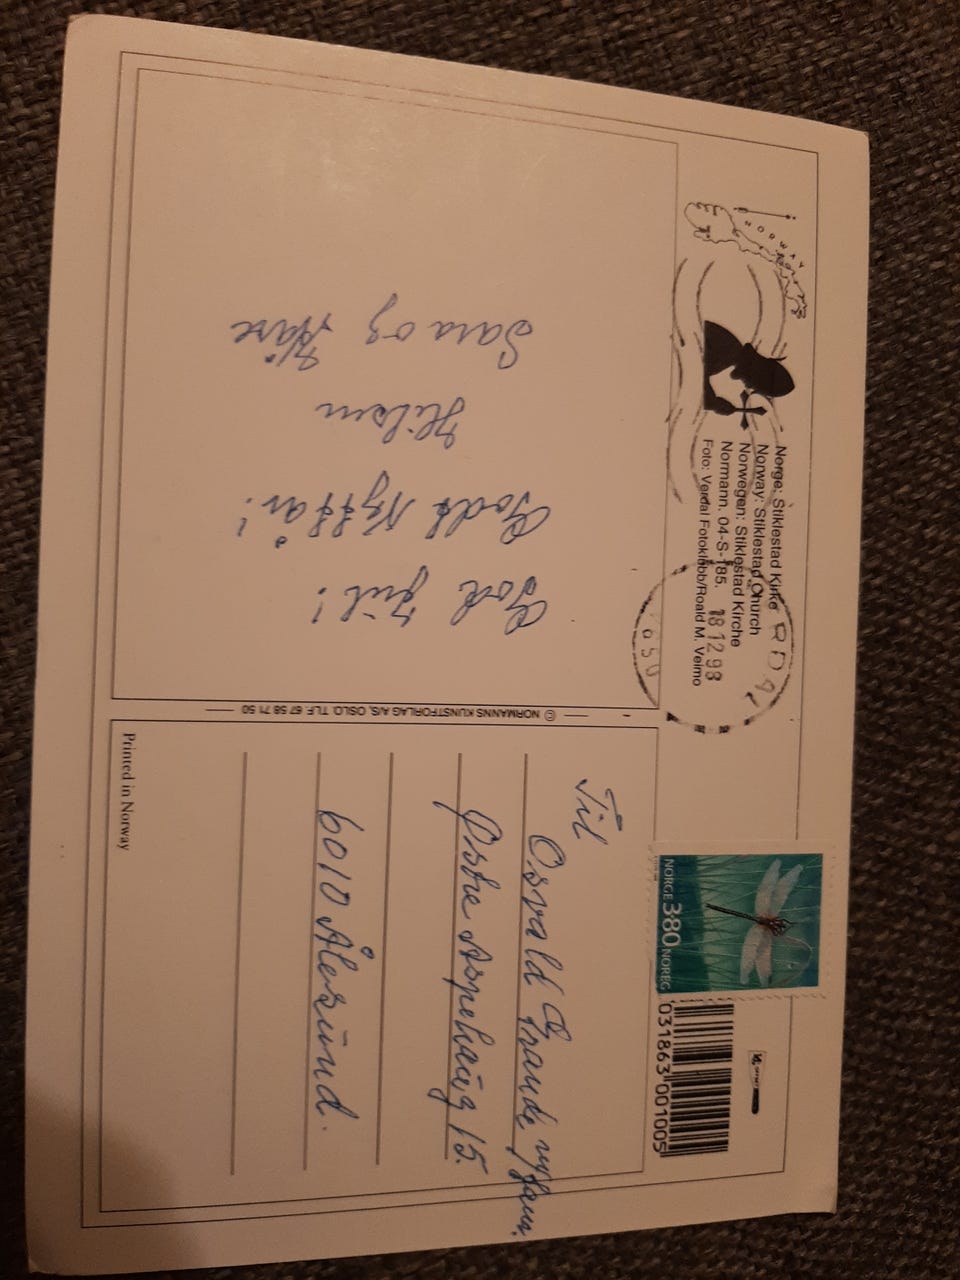 NORWAY
Norge: Stiklestad Kirke
Norway: Stiklestad Church
Norwegen: Stiklestad Kirche
Normann. 04-S-185.
Foto: Verdal Fotoklubb/Roald M. Veimo
RDAL
18 12 98
NORGE 380 NOREG
031863 001005
God Jul!
Godt Nyttår!
Hilsen
Sara og Kåre
© NORMANNS KUNSTFORLAG A/S, OSLO. TLF. 67 58 71 50
Til
Osvald Grande m/fam.
Østre Aspehaug 15.
6010 Ålesund.
Printed in Norway